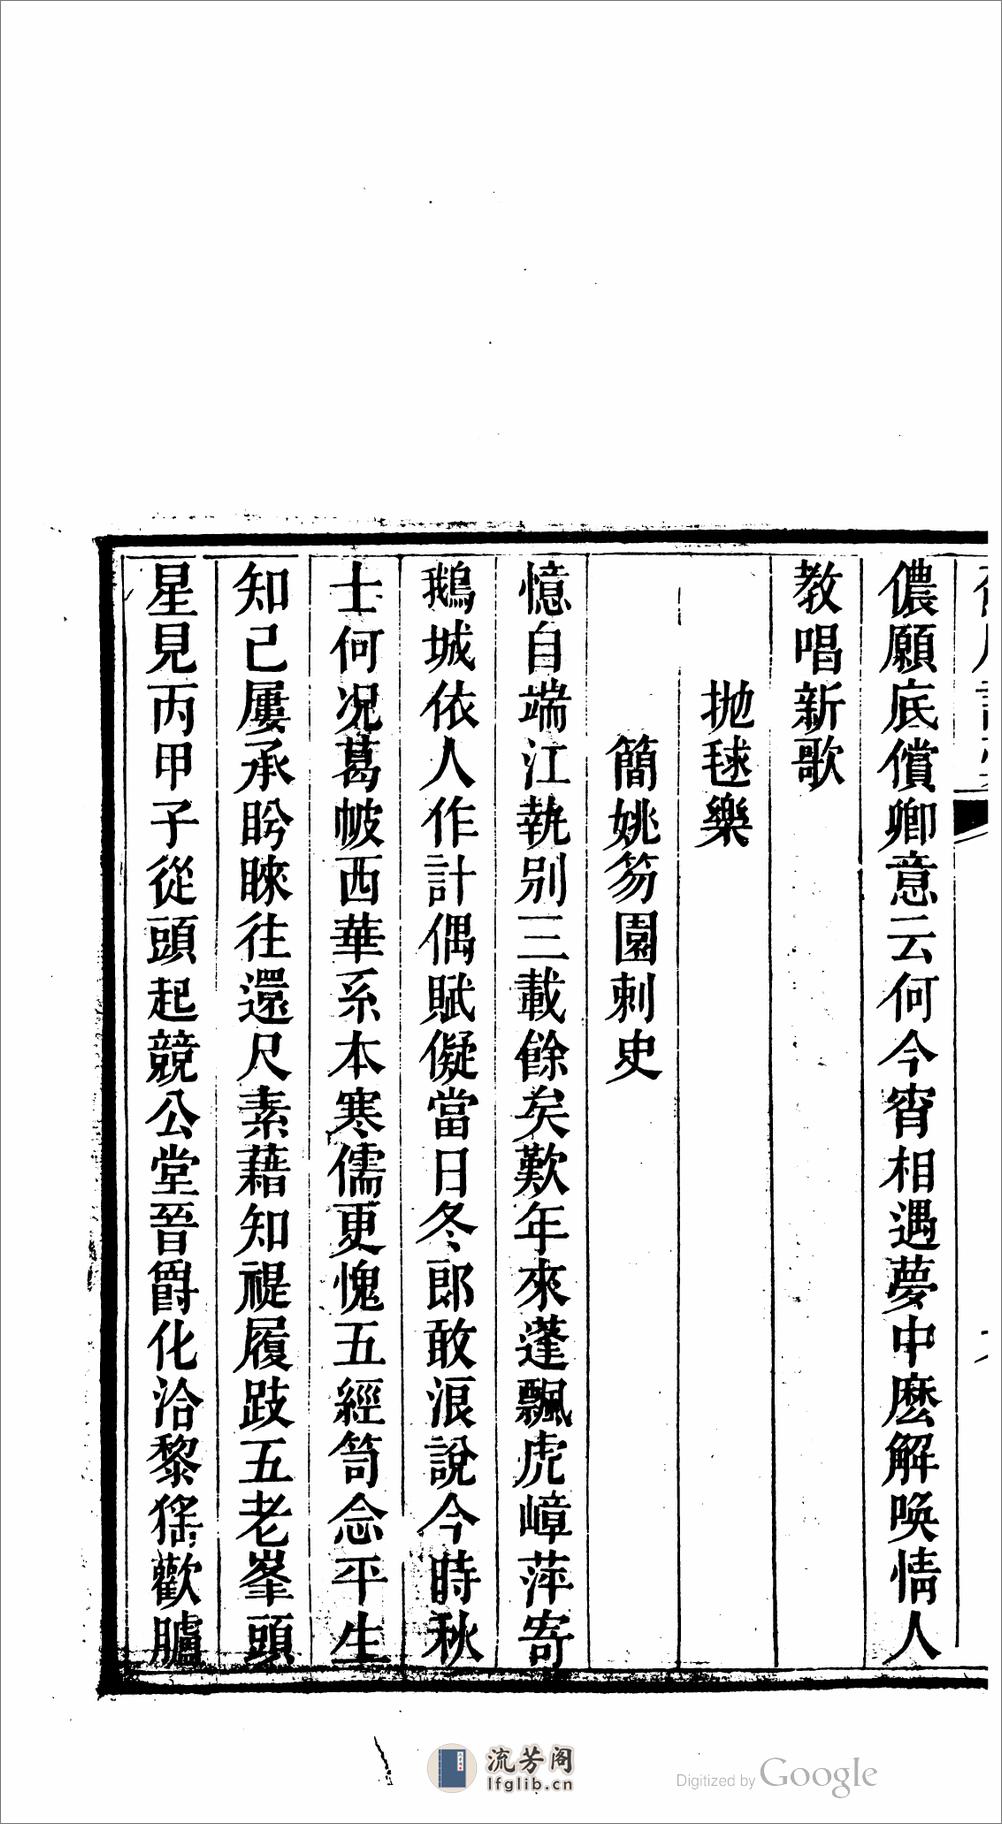 儂願底償卿意云何今宵相遇夢中麽解喚情人
教唱新歌
拋毬樂
簡姚笏園刺史
憶自端江執別三載餘矣歎年來蓬飄虎嶂萍寄
鵝城依人作計偶賦儗當日冬郎敢浪說今時秋
士何況葛帔西華系本寒儒更愧五經笥念平生
知己屢承盻睞往還尺素藉知禔履跂五老峯頭
星見丙甲子從頭起競公堂晉爵化洽黎猺歡臚
流芳阁
lfglib.cn
Digitized by Google